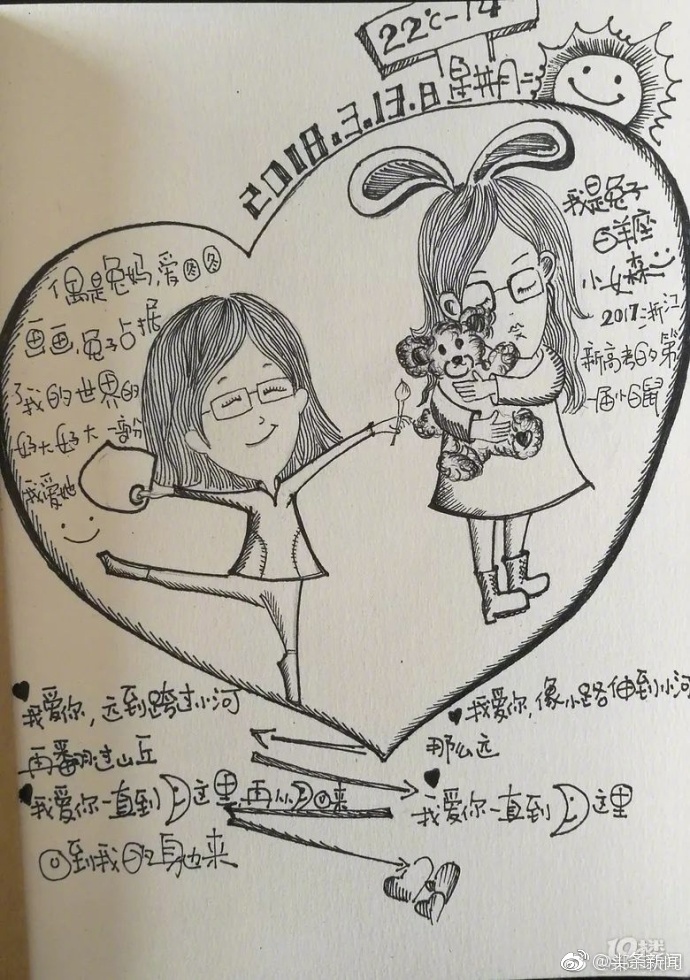 22℃-14
2018.3.13.8 星期二
我是兔子
白羊座
小女森
2017浙江
新高考的第
一届小白鼠
偶是兔妈,爱图图
画画,兔子占据
了我的世界的
好大好大一部份
我爱她
我爱你,远到跨过小河
再翻过山丘
我爱你,像小路伸到小河
那么远
我爱你一直到这里
我爱你一直到这里,再从回来
回到我的身边来
19楼
@头条新闻